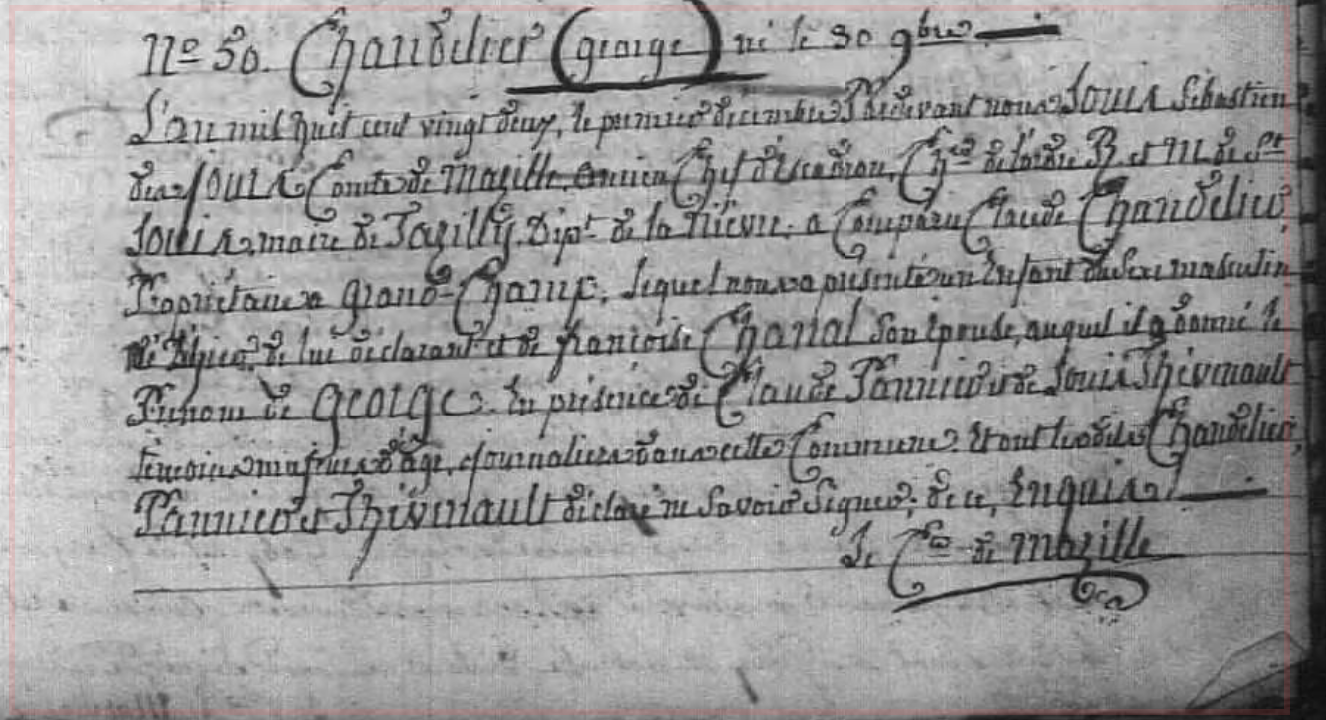 N.º 50. Chandelier (george) né le 30 9bre
L'an mil huit cent vingt deux, le premier décembre Pardevant nous Louis Sébastien
des Jours Comte de Mazille, ancien Chef d'Escadron, Ch.er de l'ordre R. et M. de St.
Louis, maire de Tazilly, Dépt. de la Nièvre. a Comparu Claude Chandelier,
Propriétaire à Grand-Champ, lequel nous a présenté un Enfant du Sexe masculin
né de lui déclarant et de françoise Chanal son Epouse, auquel il a donné le
Prénom de George. En présence de Claude Pannier et de Louis Thévenault
témoins majeurs d'âge, Journaliers dans cette Commune. Et ont lesdits Chandelier,
Pannier et Thévenault déclaré ne Savoir Signer, de ce, Enquis.
Le Cte. de Mazille